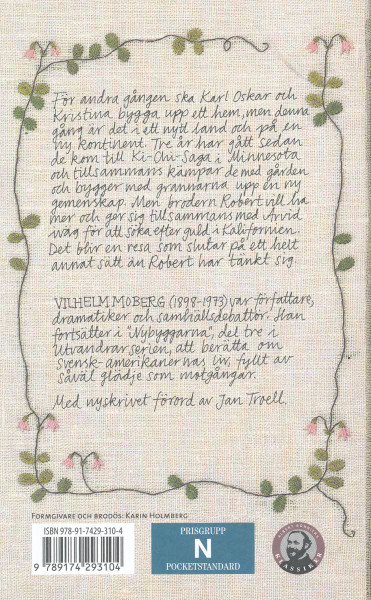 För andra gången ska Karl Oskar och
Kristina bygga upp ett hem, men denna
gång är det i ett nytt land och på en
ny kontinent. Tre år har gått sedan
de kom till Ki-Chi-Saga i Minnesota
och tillsammans kämpar de med gården
och bygger med grannarna upp en ny
gemenskap. Men brodern Robert vill ha
mer och ger sig tillsammans med Arvid
iväg för att söka efter guld i Kalifornien.
Det blir en resa som slutar på ett helt
annat sätt än Robert har tänkt sig.
VILHELM MOBERG (1898-1973) var författare,
dramatiker och samhällsdebattör. Han
fortsätter i "Nybyggarna", del tre i
Utvandrarserien, att berätta om
svensk-amerikanernas liv, fyllt av
såväl glädje som motgångar.
Med nyskrivet förord av Jan Troell.
FORMGIVARE OCH BRODÖS: KARIN HOLMBERG
ISBN 978-91-7429-310-4
9 789174 293104
PRISGRUPP
N
POCKETSTANDARD
KLASSIKER